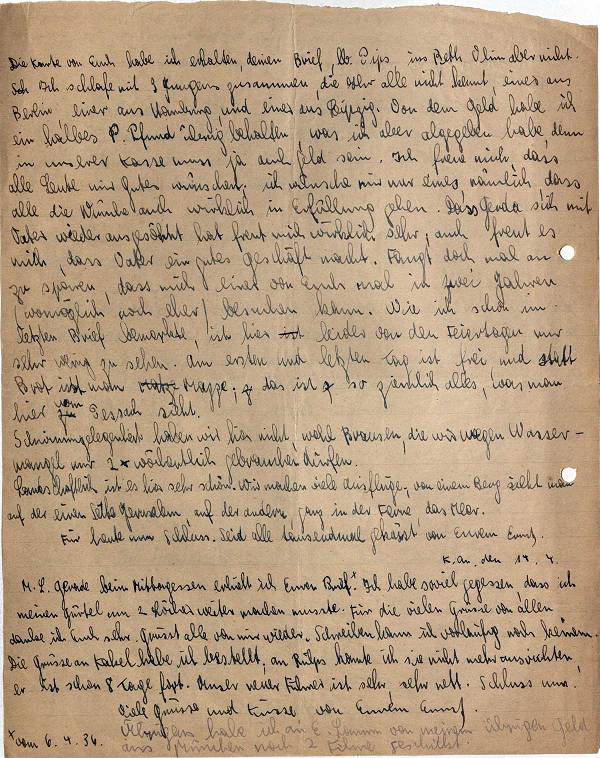 Die Karte von Euch habe ich erhalten, deinen Brief, lb. Pips, ins Beth Olim aber nicht.
Ich schlafe mit 3 Jungens zusammen, die Ihr alle nicht kennt, eines aus
Berlin, einer aus Hamburg, und einer aus Leipzig. Von dem Geld habe ich
ein halbes P. Pfund übrig behalten, was ich aber abgegeben habe, denn
in unserer Kasse muss ja auch Geld sein. Ich freue mich, dass
alle Leute mir Gutes wünschen. ich wünsche mir nur Eines, nämlich, dass
alle die Wünsche auch wirklich in Erfüllung gehen. Dass Gerda sich mit
Vater wieder ausgesöhnt hat freut mich wirklich sehr, auch freut es
mich, dass Vater ein gutes Geschäft macht. Fangt doch mal an
zu sparen, dass mich einer von Euch mal in zwei Jahren
(womöglich noch eher) besuchen kann. Wie ich schon im
letzten Brief bemerkte, ist hier leider von den Feiertagen nur
sehr wenig zu sehen. Am ersten und letzten Tag ist frei und statt
Brot isst man Mazze, das ist so ziemlich alles, was man
hier vom Pessach sieht.
Schwimmgelegenheit haben wir hier nicht, wohl Brausen, die wir wegen Wasser-
mangel nur 2 x wöchentlich gebrauchen dürfen.
Landschaftlich ist es hier sehr schön. Wir machen viele Ausflüge, von einem Berg sieht man
auf der einen Seite Jerusalem, auf der andern ganz in der Ferne das Meer.
Für heute nun Schluss. Seid alle tausendmal geküsst von Eurem Ernst.
K. An. den 14. 4.
M. L. Gerade beim Mittagessen erhielt ich Euren Brief.x Ich habe soviel gegessen, dass ich
meinen Gürtel um 2 Löcher weiter machen musste. Für die vielen Grüsse von allen
danke ich Euch sehr. Grüsst alle von mir wieder. Schreiben kann ich vorläufig noch keinem.
Die Grüsse an Kakel habe ich bestellt, an Rülps konnte ich sie nicht mehr ausrichten,
er ist schon 8 Tage fort. Unser neuer Führer ist sehr, sehr nett. Schluss nun.
Viele Grüsse und Küsse von Eurem Ernst.
x vom 6. 4. 36.
Übrigens habe ich an E. von meinem übrigen Geld
aus München noch 2 Filme geschickt.